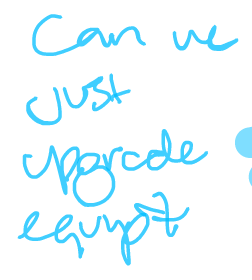 Can we
just
upgrade
equipt